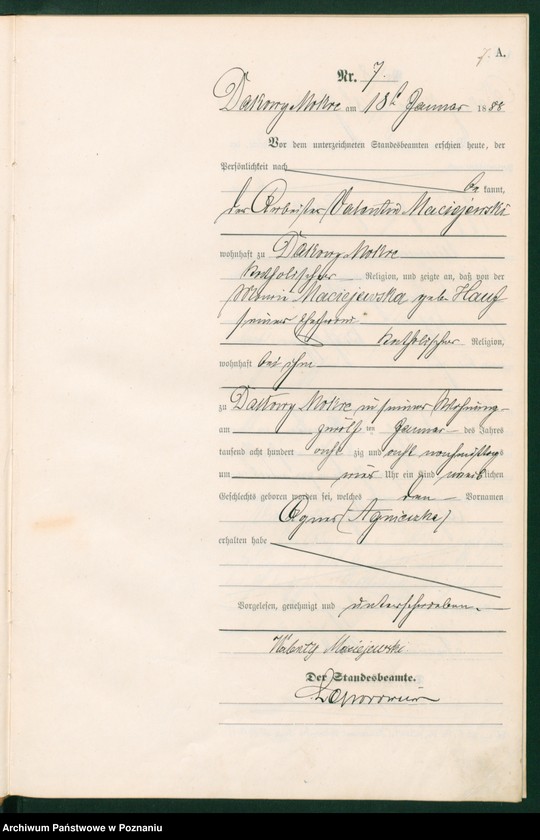 7. A.
Nr. 7.
Dakowy Mokre am 18t Januar 1888
Vor dem unterzeichneten Standesbeamten erschien heute, der
Persönlichkeit nach
be kannt,
der Arbeiter Valentin Maciejewski
wohnhaft zu Dakowy Mokre
katholischer Religion, und zeigte an, daß von der
Maciejewska geb. Hauf
seiner Ehefrau
katholischer Religion,
wohnhaft bei ihm
zu Dakowy Mokre in seiner Wohnung
am zwölf ten Januar des Jahres
tausend acht hundert acht zig und acht nachmittags
um Uhr ein Kind weib lichen
Geschlechts geboren worden sei, welches den Vornamen
Agnes (Agnieszka)
erhalten habe
Vorgelesen, genehmigt und unterschrieben.
Walenty Maciejewski.
Der Standesbeamte.
Archiwum Państwowe w Poznaniu